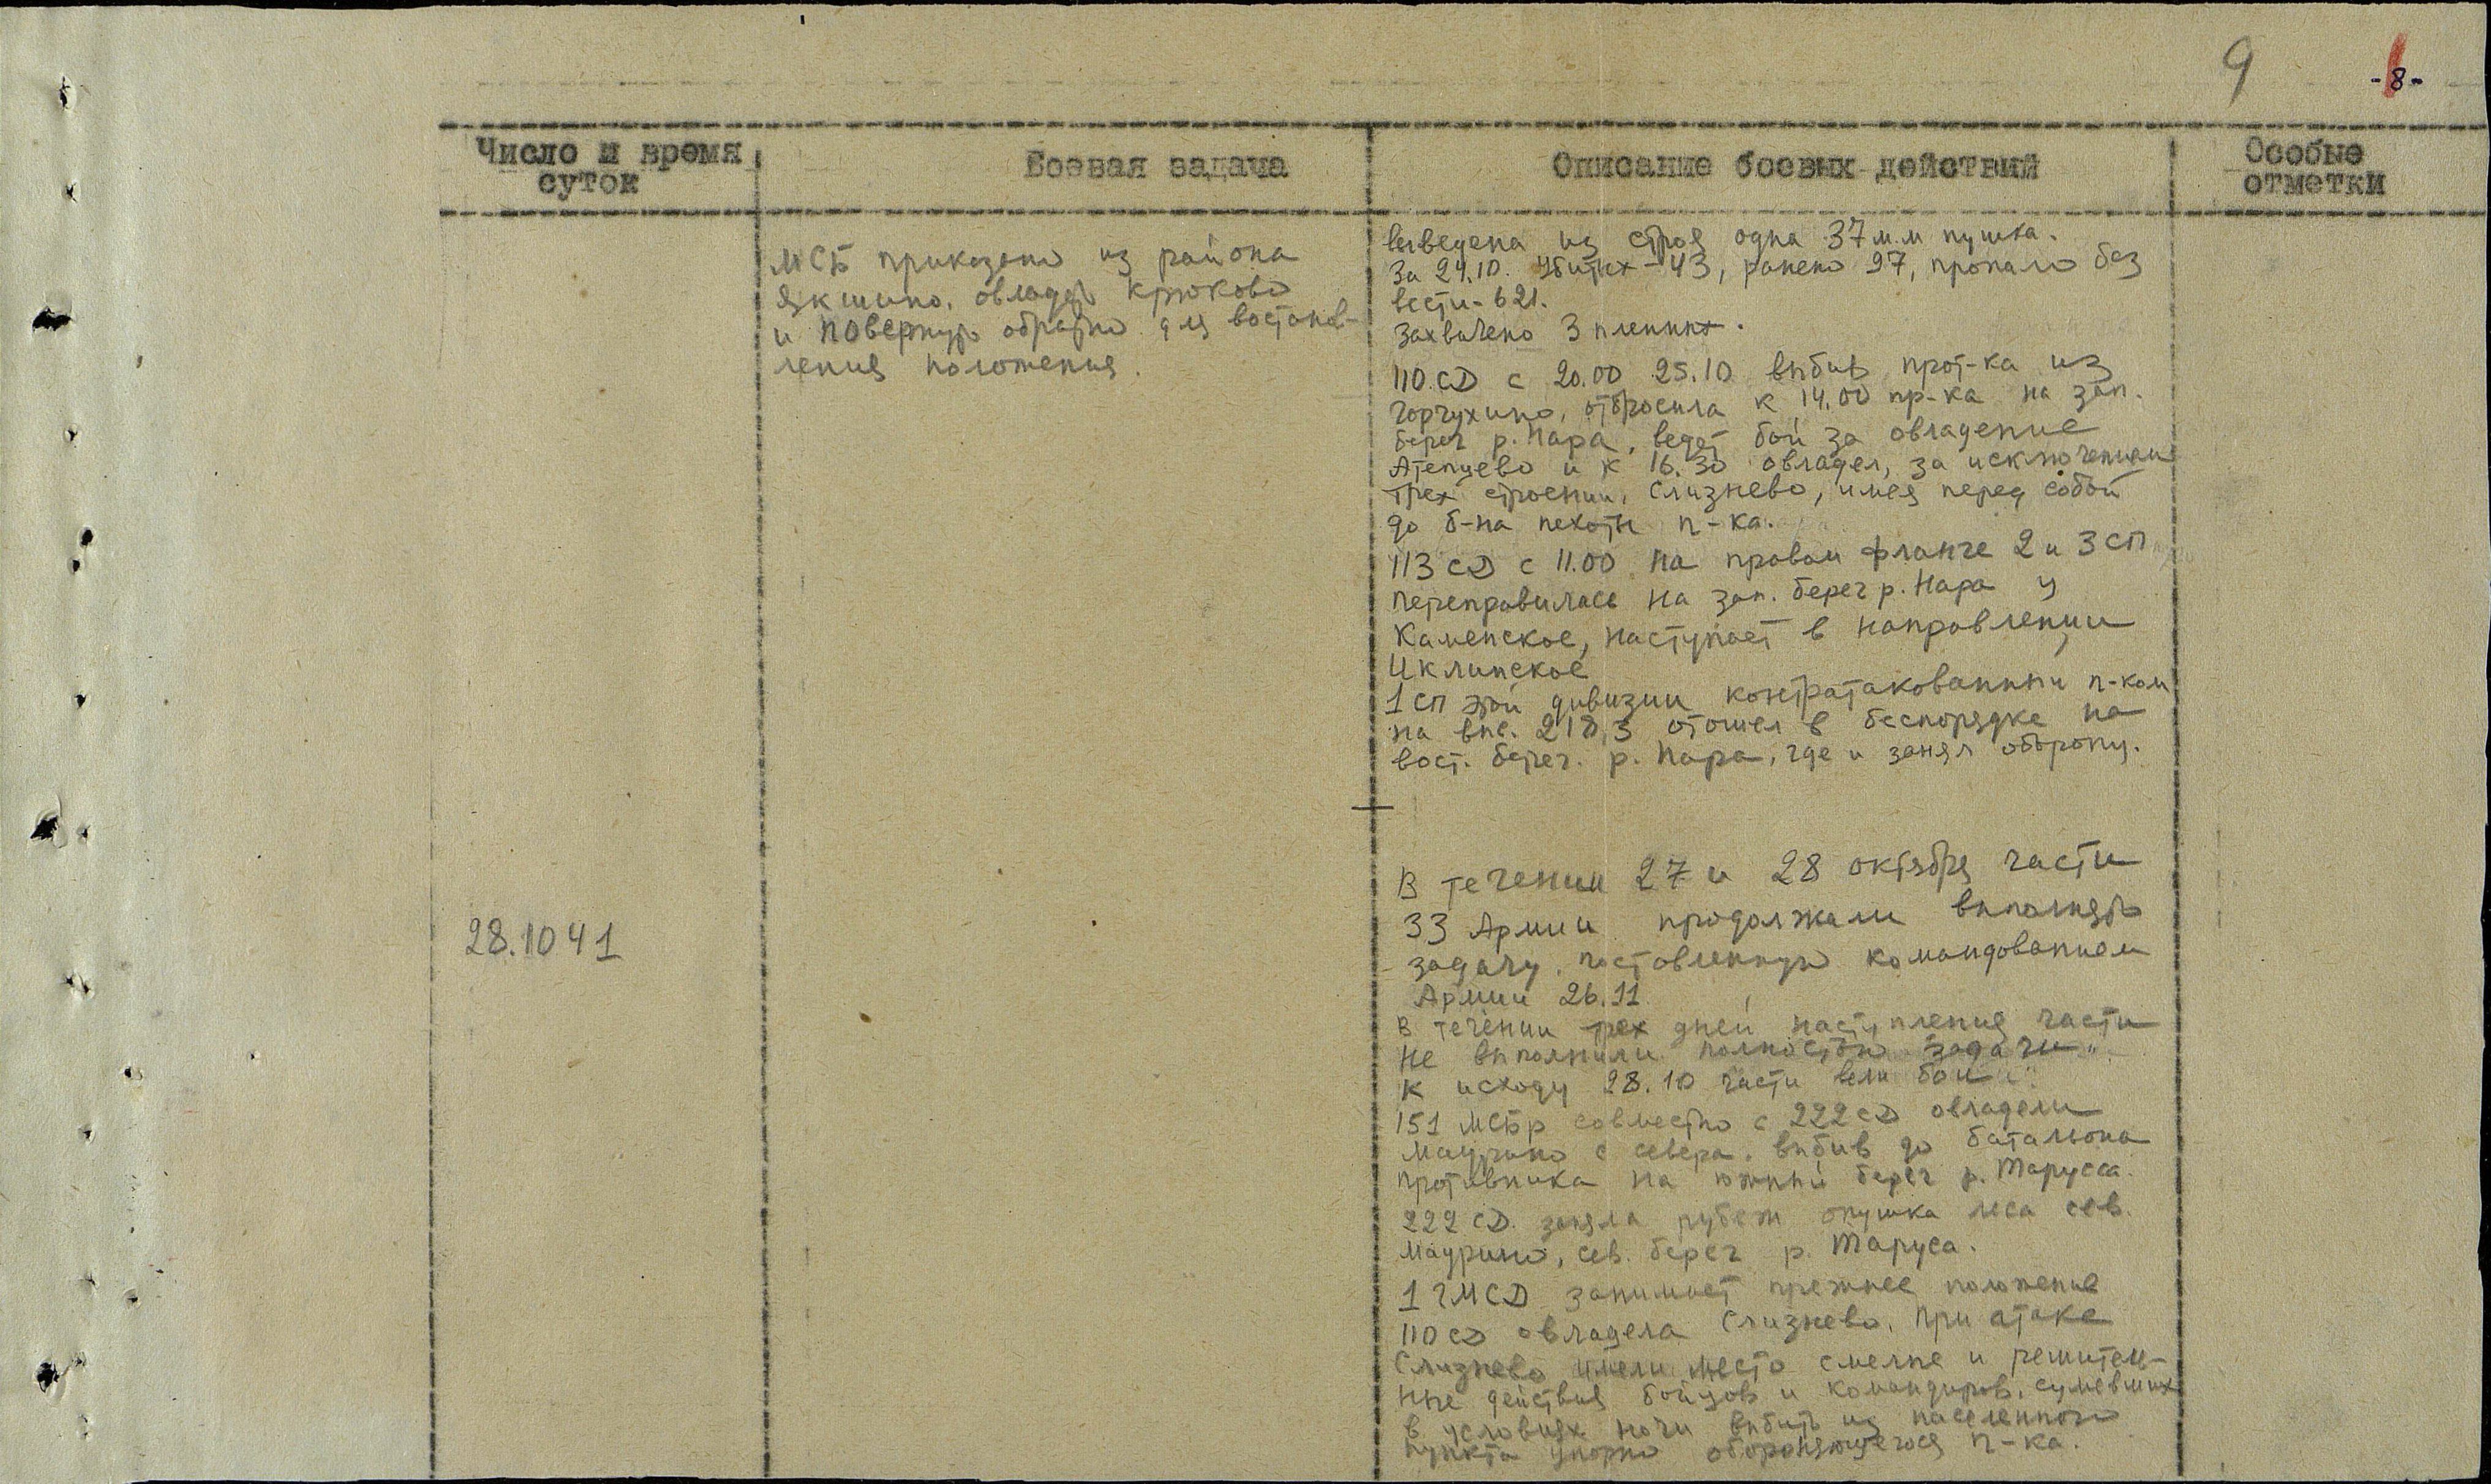 9
-8-
Число и время
суток
Боевая задача
Описание боевых действий
Особые
отметки
МСБ приказано из района
Якшино, овладеть Крюково
и повернуть обратно для востанов-
ления положения.
выведена из строя одна 37 м.м пушка.
За 24.10. Убитых - 43, ранено 97, пропало без
вести - 621.
Захвачено 3 пленных.
110 СД с 20.00 25.10 выбив прот-ка из
Горчухино, отбросила к 14.00 пр-ка на зап.
берег р. Нара, ведет бой за овладение
Атепцево и к 16.30 овладел, за исключением
трех строений, Слизнево, имея перед собой
до б-на пехоты п-ка.
113 СД с 11.00 на правом фланге 2 и 3 СП
переправилась на зап. берег р. Нара у
Каменское, наступает в направлении
Иклинское
1 СП этой дивизии контратакованный п-ком
на выс. 218,3 отошел в беспорядке на
вост. берег. р. Нара, где и занял оборону.
28.10 41
В течении 27 и 28 октября части
33 Армии продолжали выполнять
задачу, поставленную командованием
Армии 26.11
В течении трех дней наступления части
не выполнили полностью задачи.
К исходу 28.10 части вели бои
151 МСБр совместно с 222 СД овладели
Маурино с севера, выбив до батальона
противника на южный берег р. Таруса
222 СД. заняла рубеж опушка леса сев.
Маурино, сев. берег р. Таруса.
1 ГМСД занимает прежнее положение
110 СД овладела Слизнево. При атаке
Слизнево имели место смелые и решитель-
ные действия бойцов и командиров, сумевших
в условиях ночи выбить из населенного
пункта упорно обороняющегося п-ка.